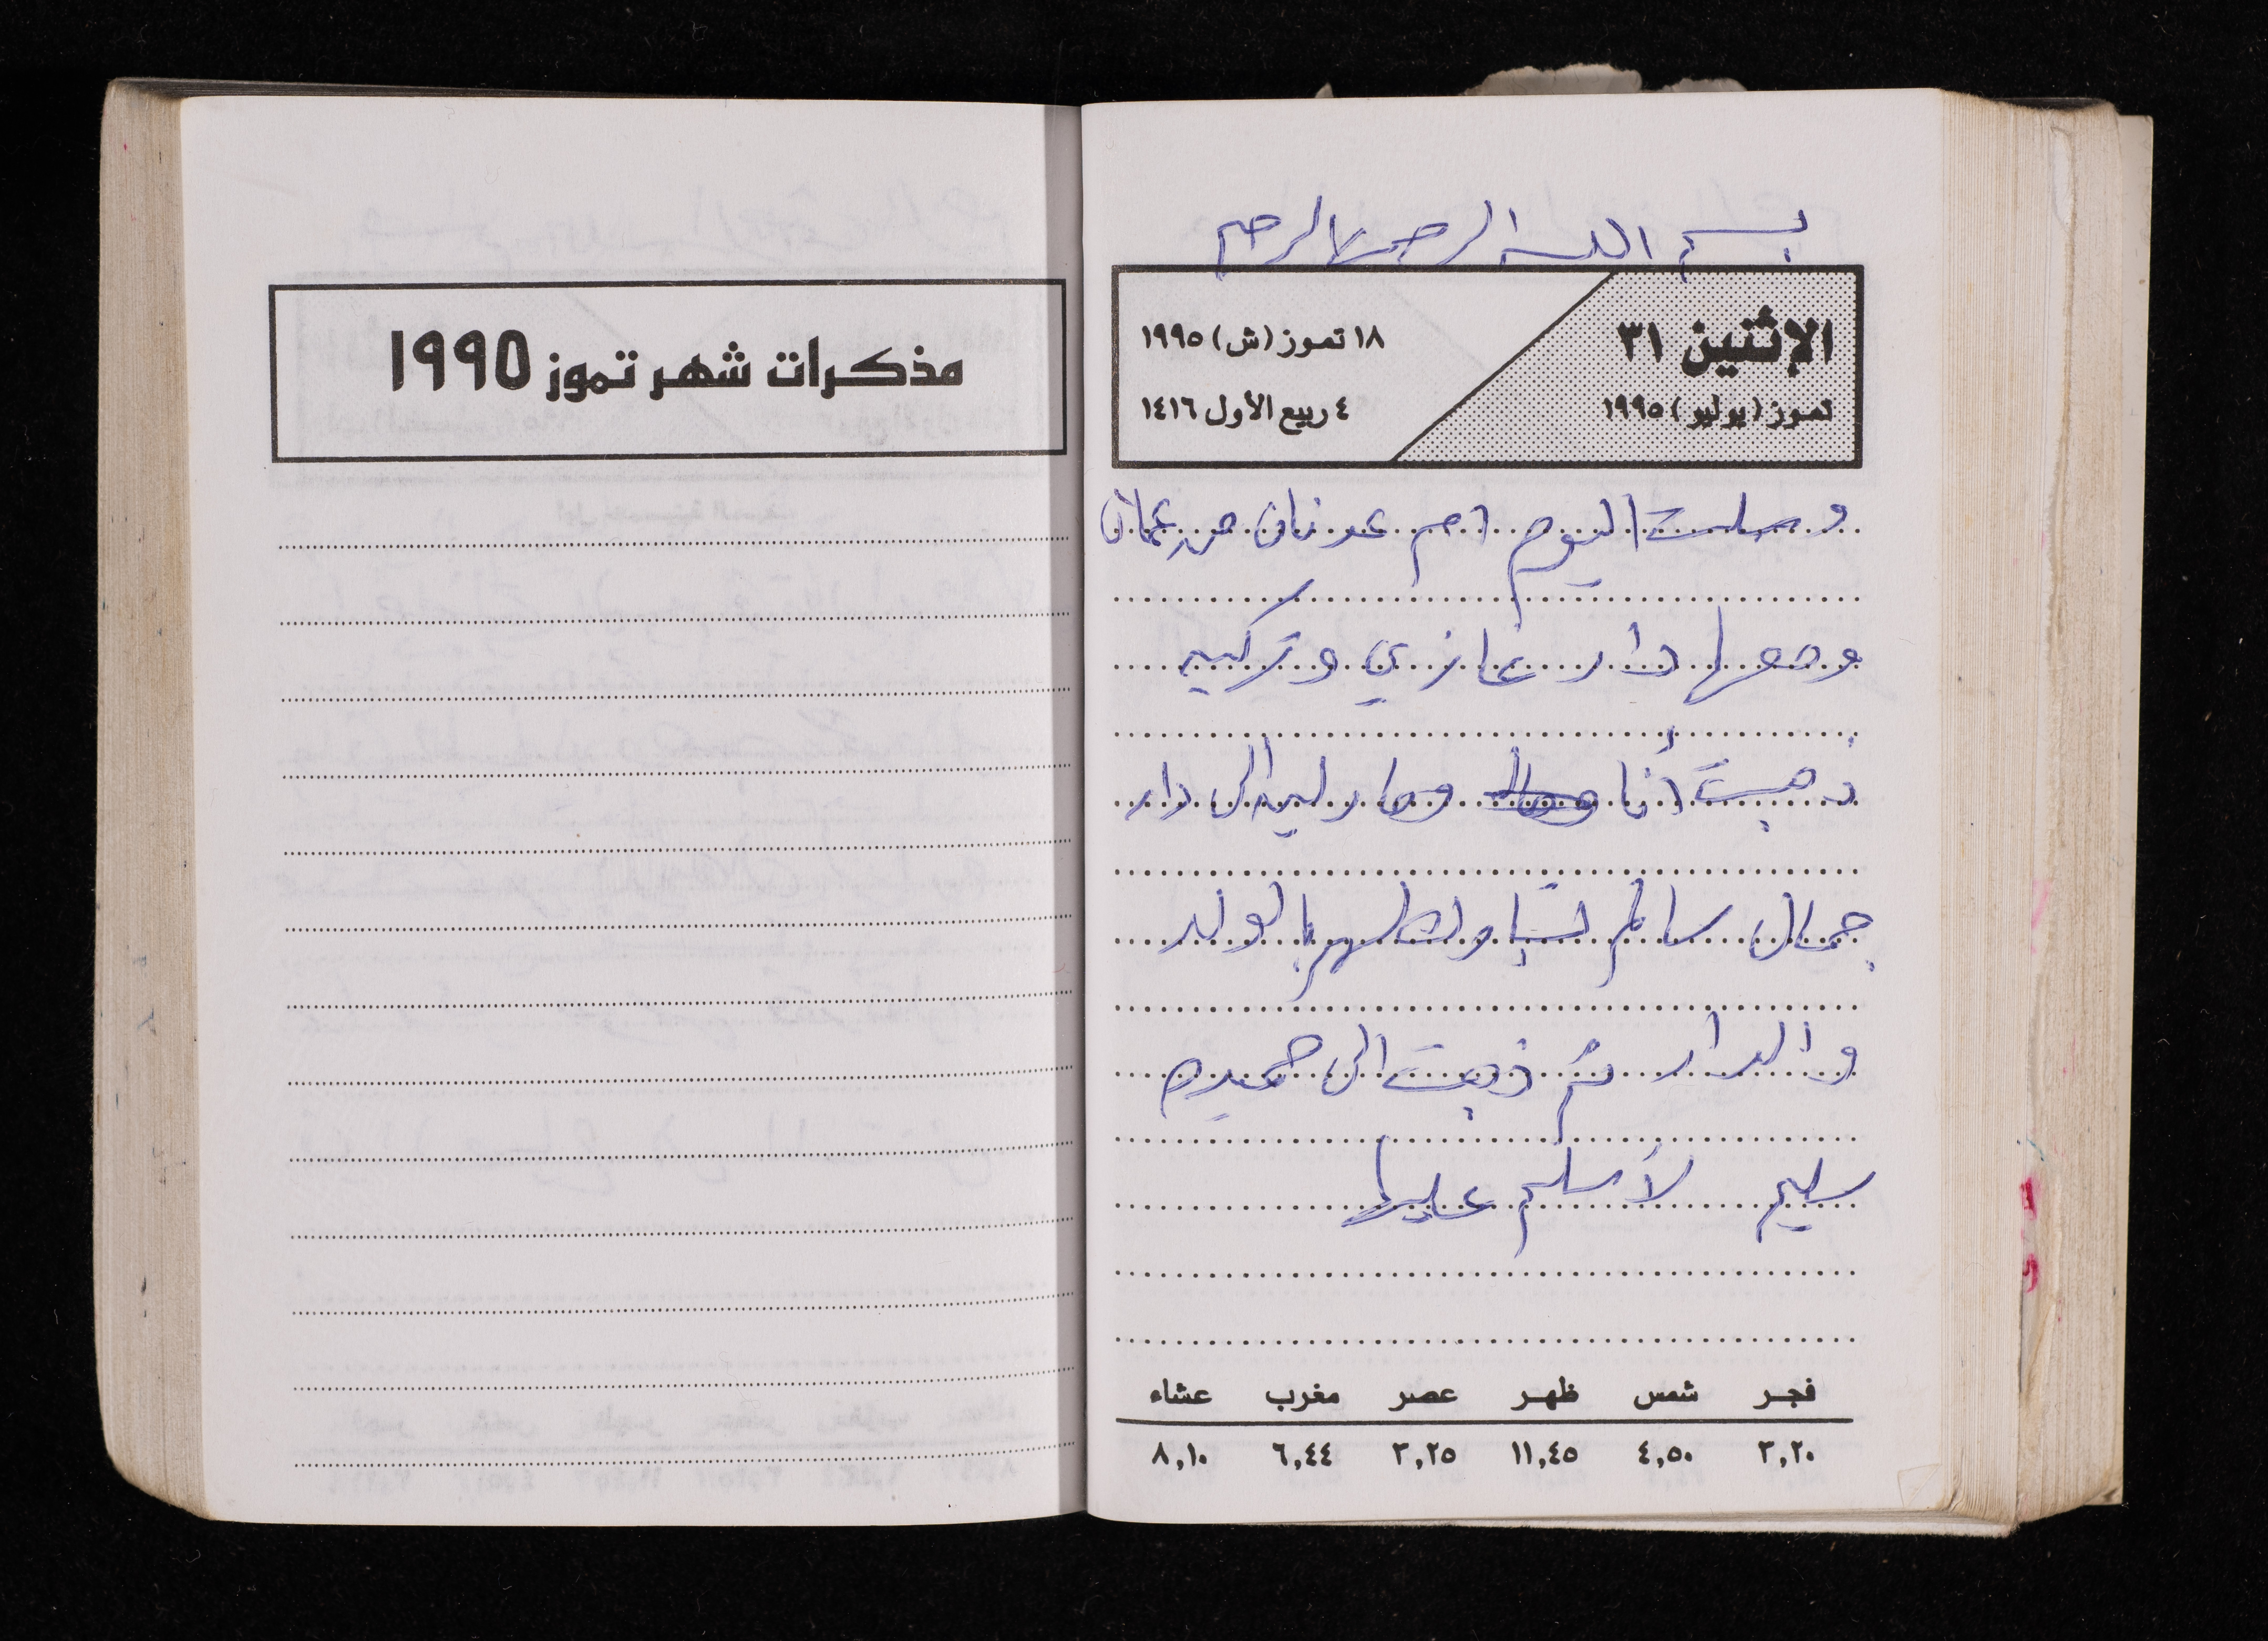 بسم الله الرحمن الرحيم
الإثنين ٣١
تموز (يوليو) ١٩٩٥
١٨ تموز (ش) ١٩٩٥
٤ ربيع الأول ١٤١٦
وصلت اليوم ام عدنان من عمان
ومعها دار غازي وتركيه
ذهبت أنا ومارليه الى دار
جمال سالم لنباركلهم بالولد
والدار ثم ذهبت الى حميده
سليم لأسلم عليها
فجر شمس ظهر عصر مغرب عشاء
٣,٢٠ ٤,٥٠ ١١,٤٥ ٣,٢٥ ٦,٤٤ ٨,١٠
مذكرات شهر تموز ١٩٩٥